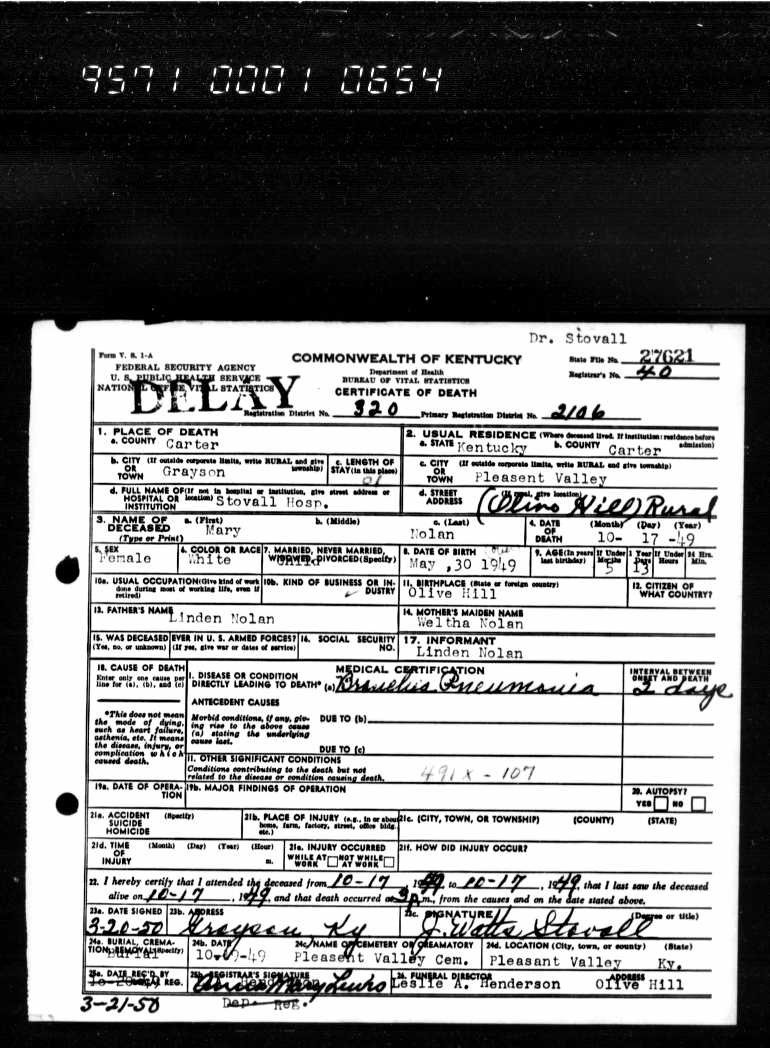 9571 0001 0654
Dr. Stovall
Form V. S. 1-A
FEDERAL SECURITY AGENCY
U. S. PUBLIC HEALTH SERVICE
NATIONAL OFFICE VITAL STATISTICS
DELAY
COMMONWEALTH OF KENTUCKY
Department of Health
BUREAU OF VITAL STATISTICS
CERTIFICATE OF DEATH
State File No. 27621
Registrar's No. 40
Registration District No. 320 Primary Registration District No. 2106
1. PLACE OF DEATH
a. COUNTY Carter
2. USUAL RESIDENCE (Where deceased lived. If institution: residence before admission)
a. STATE Kentucky b. COUNTY Carter
b. CITY (If outside corporate limits, write RURAL and give township)
OR TOWN Grayson
c. LENGTH OF STAY (in this place)
c. CITY (If outside corporate limits, write RURAL and give township)
OR TOWN Pleasent Valley
d. FULL NAME OF (If not in hospital or institution, give street address or location)
HOSPITAL OR INSTITUTION Stovall Hosp.
d. STREET ADDRESS (If rural, give location)
(Olive Hill) Rural
3. NAME OF DECEASED (Type or Print)
a. (First) Mary b. (Middle) c. (Last) Nolan
4. DATE OF DEATH (Month) (Day) (Year)
10- 17 -49
5. SEX Female
6. COLOR OR RACE White
7. MARRIED, NEVER MARRIED, WIDOWED, DIVORCED (Specify) Child
8. DATE OF BIRTH May ,30 1949
9. AGE (In years last birthday) If Under 1 Year Months 5 Days 13 If Under 24 Hrs. Hours Min.
10a. USUAL OCCUPATION (Give kind of work done during most of working life, even if retired)
10b. KIND OF BUSINESS OR INDUSTRY
11. BIRTHPLACE (State or foreign country) Olive Hill
12. CITIZEN OF WHAT COUNTRY?
13. FATHER'S NAME Linden Nolan
14. MOTHER'S MAIDEN NAME Weltha Nolan
15. WAS DECEASED EVER IN U. S. ARMED FORCES? (Yes, no, or unknown) (If yes, give war or dates of service)
16. SOCIAL SECURITY NO.
17. INFORMANT Linden Nolan
18. CAUSE OF DEATH
Enter only one cause per line for (a), (b), and (c)
MEDICAL CERTIFICATION
INTERVAL BETWEEN ONSET AND DEATH
I. DISEASE OR CONDITION DIRECTLY LEADING TO DEATH* (a) Bronchis Pneumonia 2 days
ANTECEDENT CAUSES
*This does not mean the mode of dying, such as heart failure, asthenia, etc. It means the disease, injury, or complication which caused death.
Morbid conditions, if any, giving rise to the above cause (a) stating the underlying cause last.
DUE TO (b)
DUE TO (c)
II. OTHER SIGNIFICANT CONDITIONS
Conditions contributing to the death but not related to the disease or condition causing death.
491x - 107
19a. DATE OF OPERATION
19b. MAJOR FINDINGS OF OPERATION
20. AUTOPSY?
YES NO
21a. ACCIDENT SUICIDE HOMICIDE (Specify)
21b. PLACE OF INJURY (e.g., in or about home, farm, factory, street, office bldg., etc.)
21c. (CITY, TOWN, OR TOWNSHIP) (COUNTY) (STATE)
21d. TIME OF INJURY (Month) (Day) (Year) (Hour) m.
21e. INJURY OCCURRED
WHILE AT WORK NOT WHILE AT WORK
21f. HOW DID INJURY OCCUR?
22. I hereby certify that I attended the deceased from 10-17, 1949, to 10-17, 1949, that I last saw the deceased
alive on 10-17, 1949, and that death occurred at 3 p.m., from the causes and on the date stated above.
23a. DATE SIGNED 3-20-50
23b. ADDRESS Grayson Ky
23c. SIGNATURE (Degree or title)
J. Watts Stovall
24a. BURIAL, CREMATION, REMOVAL (Specify) Burial
24b. DATE 10-19-49
24c. NAME OF CEMETERY OR CREAMATORY Pleasent Valley Cem.
24d. LOCATION (City, town, or county) (State)
Pleasant Valley Ky.
25a. DATE REC'D BY LOCAL REG.
3-21-50
25b. REGISTRAR'S SIGNATURE
Mary Lewis
Dep. Reg.
26. FUNERAL DIRECTOR ADDRESS
Leslie A. Henderson Olive Hill